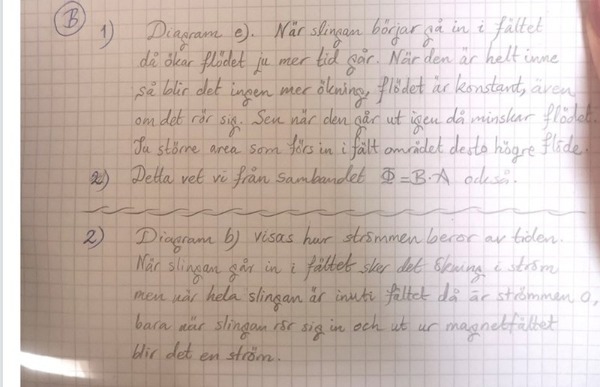 B
1) Diagram e). När slingan börjar gå in i fältet
då ökar flödet ju mer tid går. När den är helt inne
så blir det ingen mer ökning, flödet är konstant, även
om det rör sig. Sen när den går ut igen då minskar flödet.
Ju större area som förs in i fält området desto högre flöde.
2) Detta vet vi från sambandet Φ = B·A också.
2) Diagram b) visas hur strömmen beror av tiden.
När slingan går in i fältet sker det ökning i ström
men när hela slingan är inuti fältet då är strömmen 0,
bara när slingan rör sig in och ut ur magnetfältet
blir det en ström.